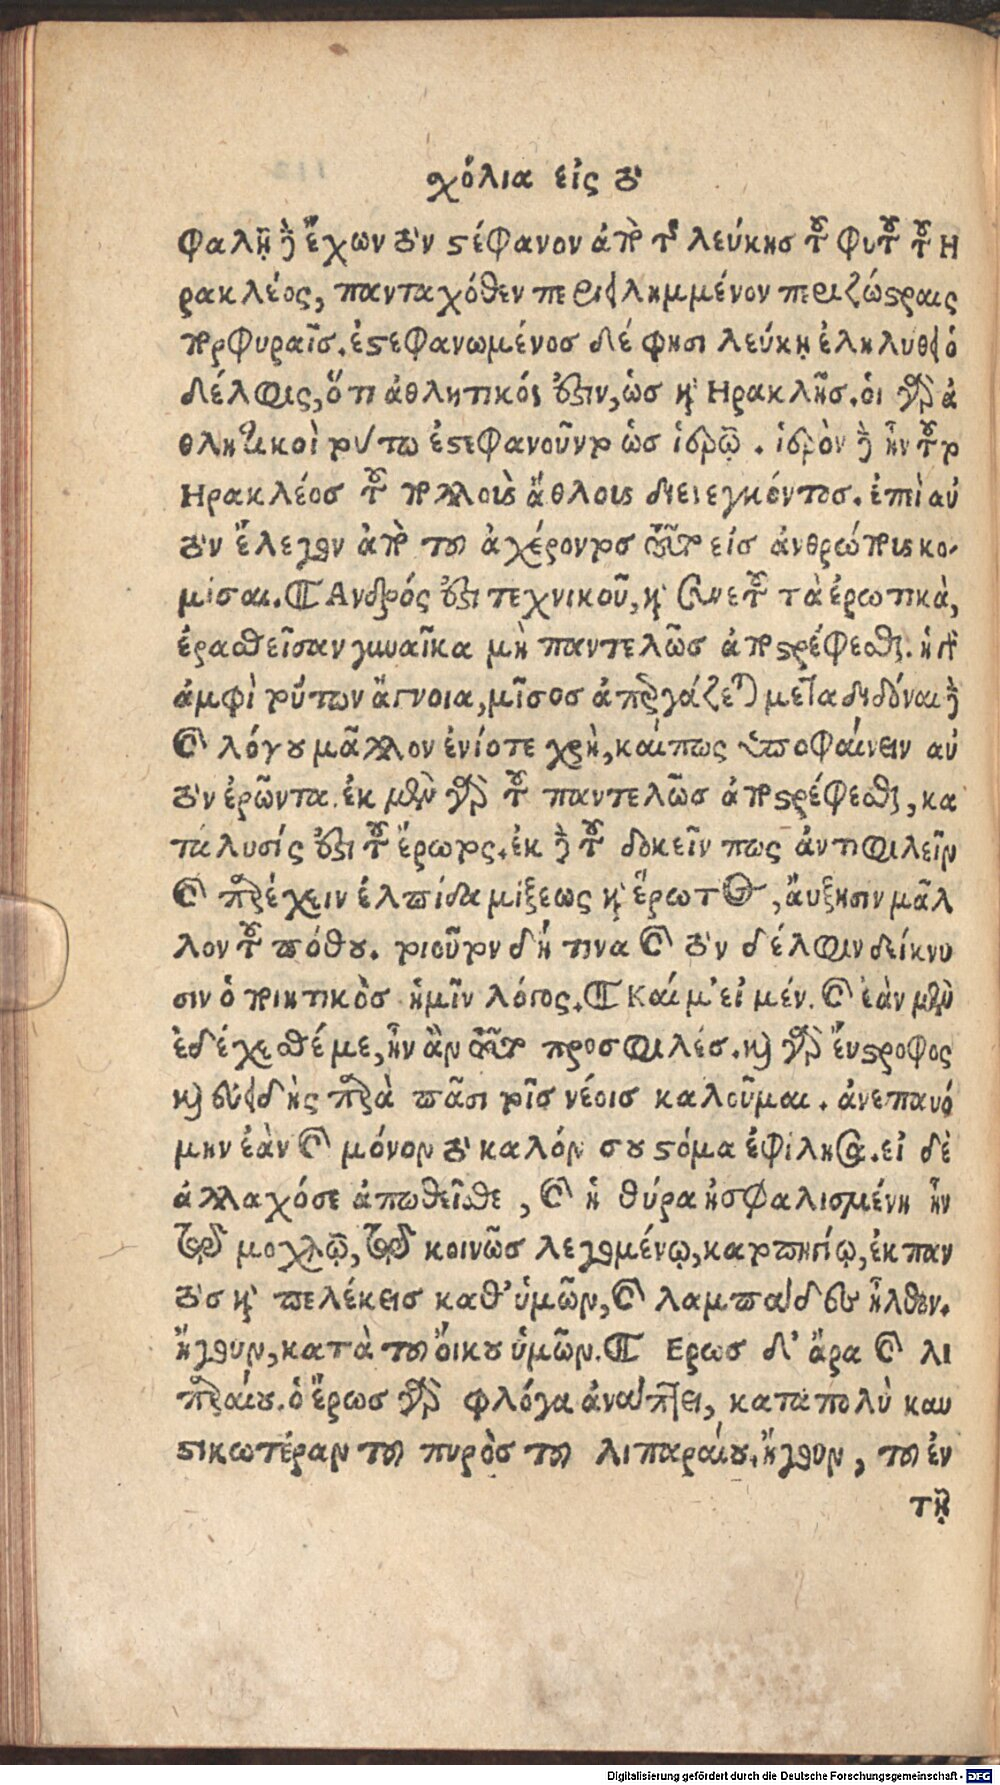 χόλια εἰς τὸ
φαλῇ δὲ ἔχων τὸν στέφανον ἀπὸ τῆς λεύκης τοῦ φυτοῦ τοῦ Η
ρακλέος, πανταχόθεν περιειλημμένον περιζώστραις
πορφυραῖς. ἐστεφανωμένος δέ φησι λεύκῃ ἐληλυθέναι ὁ
δέλφις, ὅτι ἀθλητικός ἐστιν, ὡς καὶ Ηρακλῆς. οἱ γὰρ ἀ
θλητικοὶ τούτῳ ἐστεφανοῦντο ὡς ἱερῷ. ἱερὸν δὲ ἦν τοῦτο
Ηρακλέος τοῦ πολλοὺς ἄθλους διενεγκόντος. ἐπεὶ αὐ
τὸν ἔλεγον ἀπὸ τοῦ ἀχέροντος τοῦτο εἰς ἀνθρώπους κο-
μίσαι. ¶ Ανδρός ἐστι τεχνικοῦ, καὶ συνετοῦ τὰ ἐρωτικὰ,
ἐρασθεῖσαν γυναῖκα μὴ παντελῶς ἀποστρέφεσθαι. ἡ γὰρ
ἀμφὶ τούτων ἄγνοια, μῖσος ἀπεργάζεται μεταδιδόναι δὲ
τοῦ λόγου μᾶλλον ἐνίοτε χρὴ, καίπως ὑποφαίνειν αὐ
τὸν ἐρῶντα. ἐκ μὲν γὰρ τοῦ παντελῶς ἀποστρέφεσθαι, κα
τάλυσίς ἐστι τοῦ ἔρωτος. ἐκ δὲ τοῦ δοκεῖν πως ἀντιφιλεῖν
καὶ παρέχειν ἐλπίδα μίξεως καὶ ἔρωτος, ἄυξησιν μᾶλ
λον τοῦ πόθου. τοιοῦτον δή τινα καὶ τὸν δέλφιν δείκνυ
σιν ὁ ποιητικὸς ἡμῖν λόγος. ¶ Καί μ' εἰ μέν. καὶ ἐὰν μὲν
ἐδέχεσθέ με, ἦν ἂν τοῦτο προσφιλές. καὶ γὰρ ἔυστροφος
καὶ ἐυειδὴς παρὰ πᾶσι τοῖς νέοις καλοῦμαι. ἀνεπαυό
μην ἐὰν καὶ μόνον τὸ καλόν σου στόμα ἐφίλησα. εἰ δὲ
ἀλλαχόσε ἀπωθεῖσθε, καὶ ἡ θύρα ἠσφαλισμένη ἦν
τῷ μοχλῷ, τῷ κοινῶς λεγομένῳ, κατωπηγίῳ, ἐκ παν
τὸς καὶ πελέκεις καθ' ὑμῶν, καὶ λαμπάδες ἦλθον.
ἤγουν, κατὰ τοῦ ὄικου ὑμῶν. ¶ Ερως δ' ἄρα καὶ λι
παραίου. ὁ ἔρως γὰρ φλόγα ἀνάπτει, καταπολὺ καυ
στικωτέραν τοῦ πυρὸς τοῦ λιπαραίου. ἤγουν, τοῦ ἐν
τῇ
Digitalisierung gefördert durch die Deutsche Forschungsgemeinschaft - DFG